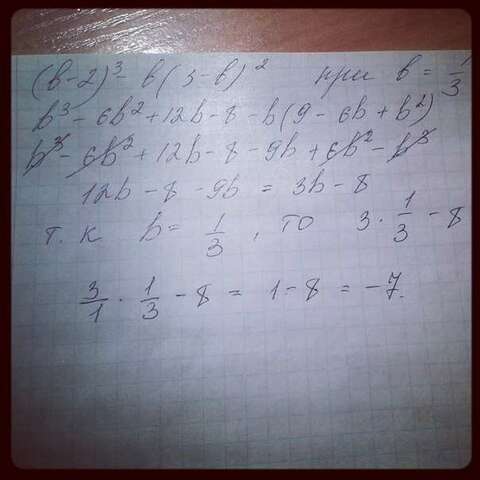 (b-2)³ - b(3-b)² при b = 1/3
b³ - 6b² + 12b - 8 - b(9 - 6b + b²)
b³ - 6b² + 12b - 8 - 9b + 6b² - b³
12b - 8 - 9b = 3b - 8
т. к b = 1/3, то 3 · 1/3 - 8
3/1 · 1/3 - 8 = 1 - 8 = -7.